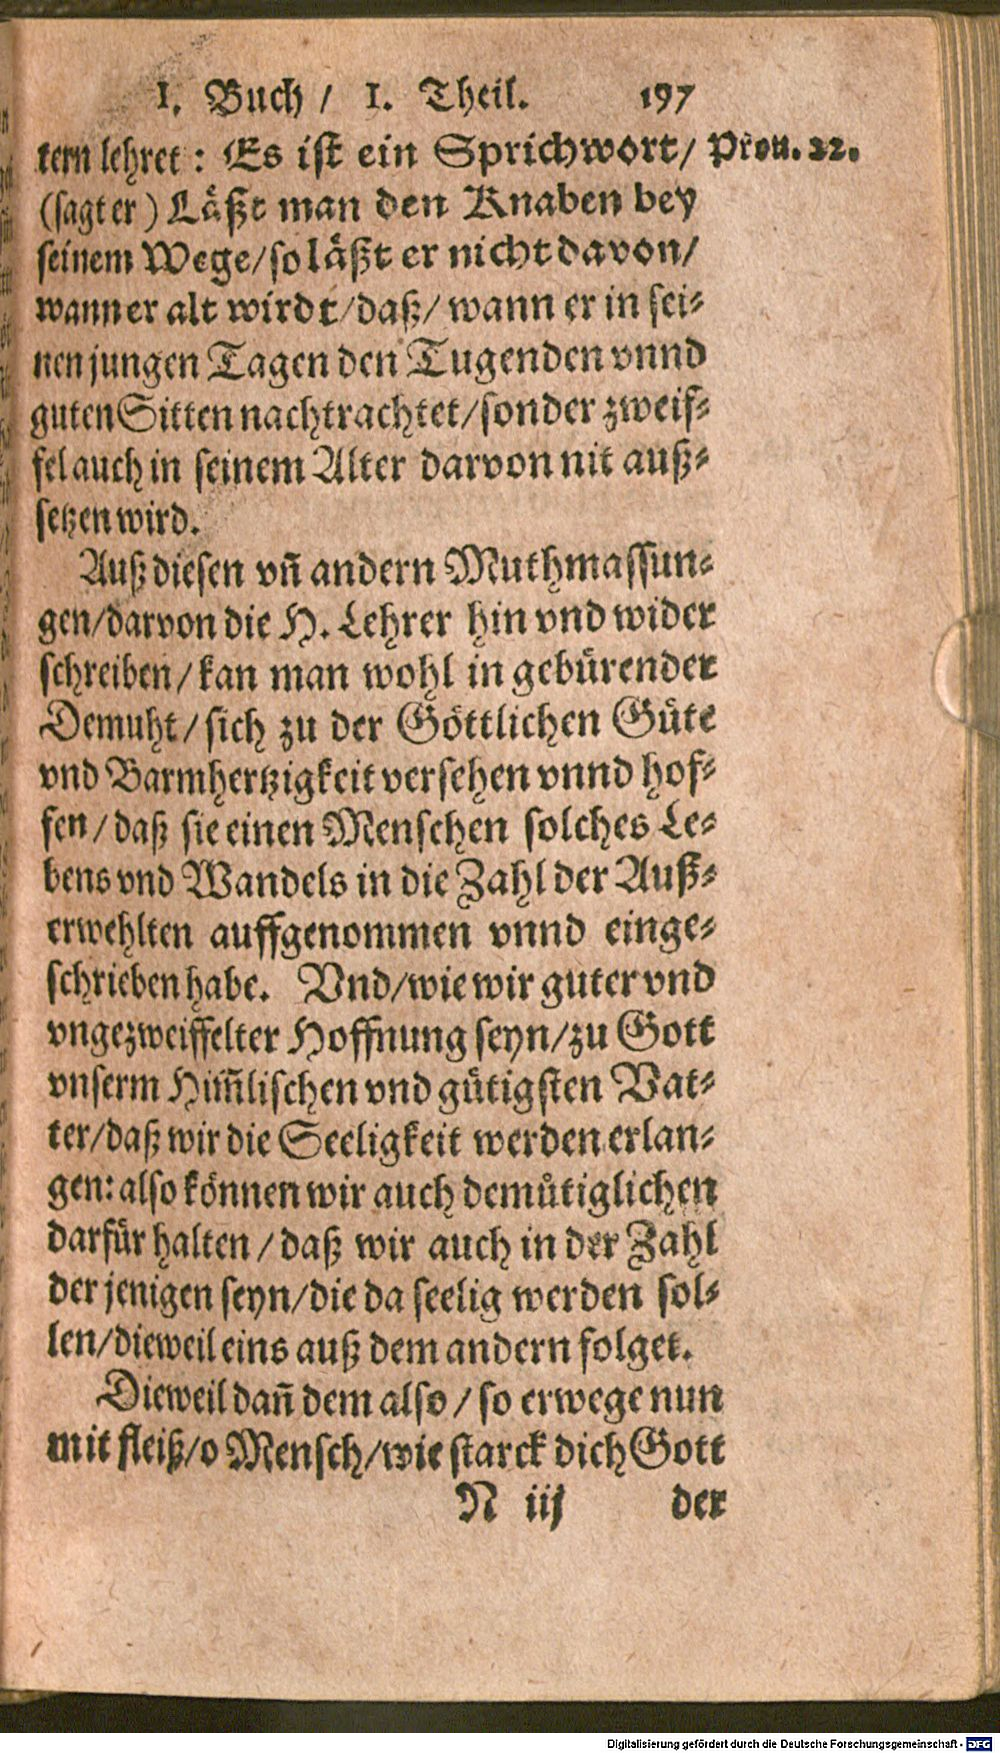 1. Buch / 1. Theil. 197
tern lehret: Es ist ein Sprichwort/ Prou. 22.
(sagt er) Läßt man den Knaben bey
seinem Wege/so läßt er nicht davon/
wann er alt wirdt/daß/ wann er in sei-
nen jungen Tagen den Tugenden vnnd
guten Sitten nachtrachtet/sonder zweif-
fel auch in seinem Alter darvon nit auß-
setzen wird.
Auß diesen vñ andern Muthmassun-
gen/darvon die H. Lehrer hin vnd wider
schreiben/kan man wohl in gebürender
Demuht/sich zu der Göttlichen Güte
vnd Barmhertzigkeit versehen vnnd hof-
fen/daß sie einen Menschen solches Le-
bens vnd Wandels in die Zahl der Auß-
erwehlten auffgenommen vnnd einge-
schrieben habe. Vnd/wie wir guter vnd
vngezweiffelter Hoffnung seyn/zu Gott
vnserm Him̃lischen vnd gütigsten Vat-
ter/daß wir die Seeligkeit werden erlan-
gen: also können wir auch demütiglichen
darfür halten/daß wir auch in der Zahl
der jenigen seyn/die da seelig werden sol-
len/dieweil eins auß dem andern folget.
Dieweil dañ dem also/so erwege nun
mit fleiß/o Mensch/wie starck dich Gott
N iij der
Digitalisierung gefördert durch die Deutsche Forschungsgemeinschaft - DFG